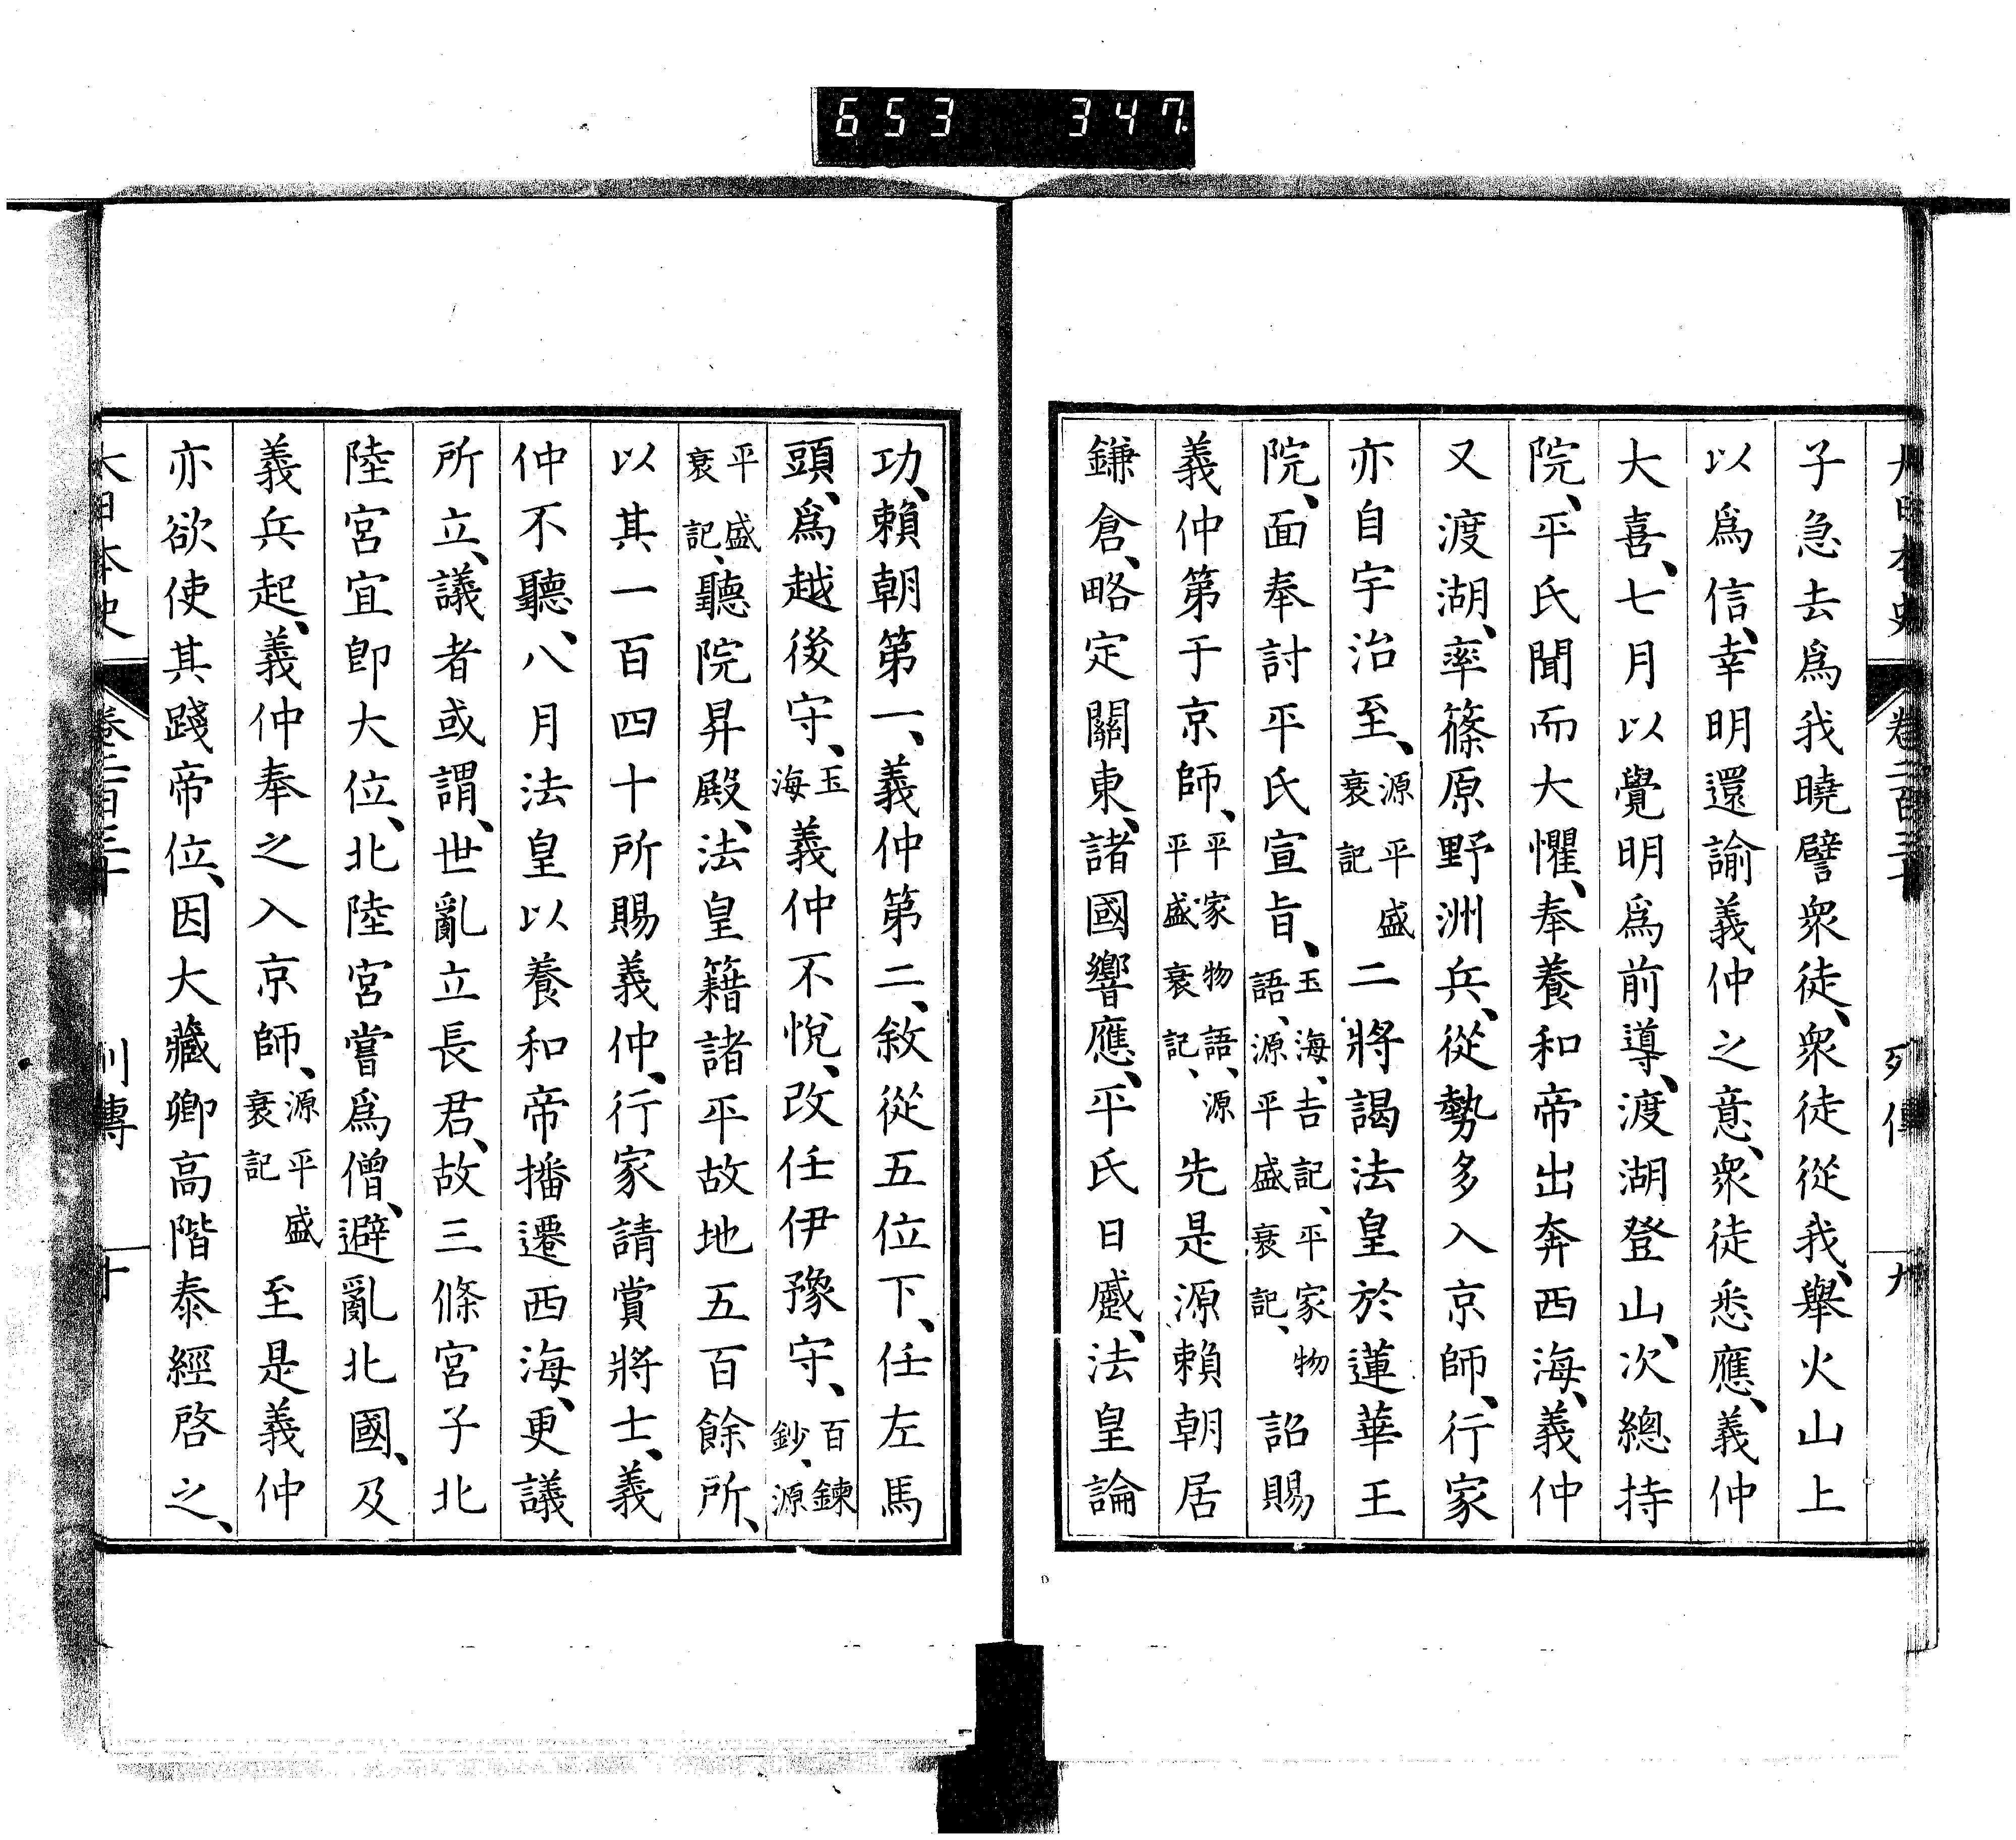 653 347
大日本史 卷二百三十 列傳 九
子急去爲我曉譬衆徒、衆徒從我、擧火山上
以爲信、幸明還諭義仲之意、衆徒悉應、義仲
大喜、七月以覺明爲前導、渡湖登山、次總持
院、平氏聞而大懼、奉養和帝出奔西海、義仲
又渡湖、率篠原野洲兵、從勢多入京師、行家
亦自宇治至、源平盛衰記二將謁法皇於蓮華王
院、面奉討平氏宣旨、玉海、吉記、平家物語、源平盛衰記、詔賜
義仲第于京師、平家物語、源平盛衰記、先是源賴朝居
鎌倉、略定關東、諸國響應、平氏日蹙、法皇論
功、賴朝第一、義仲第二、敘從五位下、任左馬
頭、爲越後守、玉海義仲不悅、改任伊豫守、百鍊鈔、源
平盛衰記、聽院昇殿、法皇籍諸平故地五百餘所、
以其一百四十所賜義仲、行家請賞將士、義
仲不聽、八月法皇以養和帝播遷西海、更議
所立、議者或謂、世亂立長君、故三條宮子北
陸宮宜卽大位、北陸宮嘗爲僧、避亂北國、及
義兵起、義仲奉之入京師、源平盛衰記至是義仲
亦欲使其踐帝位、因大藏卿高階泰經啓之、
大日本史 卷二百三十 列傳 十